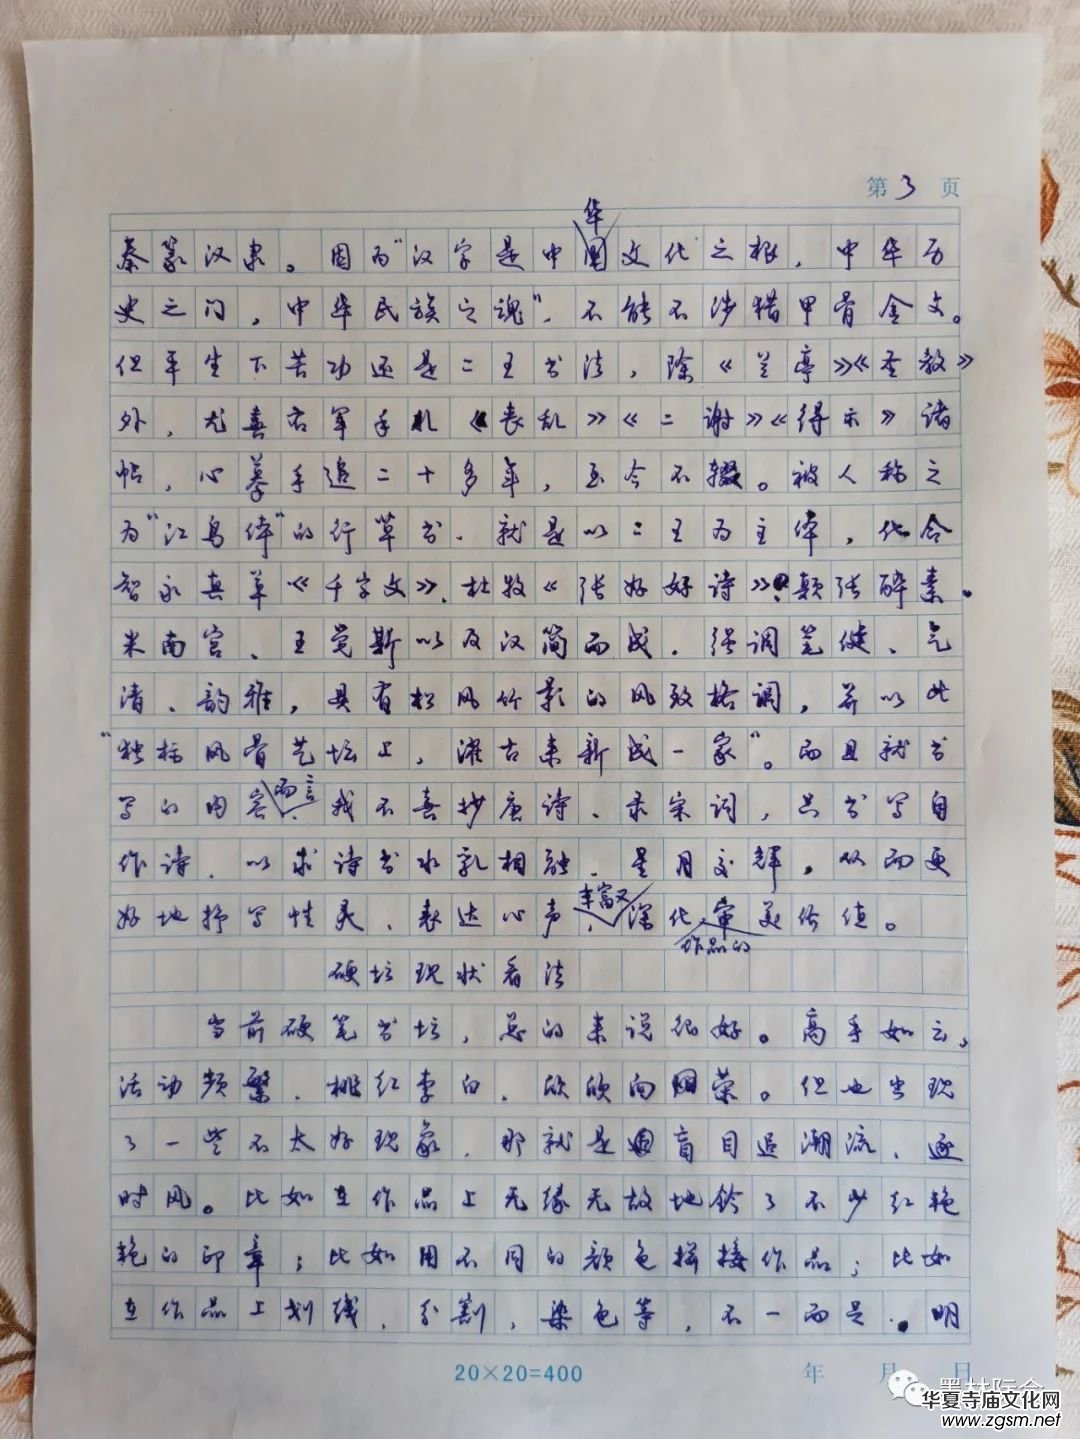 第3页
华
秦篆汉隶。因为“汉字是中国文化之根，中华历
史之门，中华民族之魂”，不能不涉猎甲骨金文。
但平生下苦功还是二王书法，除《兰亭》《圣教》
外，尤喜右军手札《丧乱》《二谢》《得示》诸
帖，心摹手追二十多年，至今不辍。被人称之
为“江鸟体”的行草书，就是以二王为主体，化合
智永真草《千字文》、杜牧《张好好诗》、颠张醉素、
米南宫、王觉斯以及汉简而成。强调笔健、气
清、韵雅，具有松风竹影的风致格调，并以此
“独标风骨艺坛上，濯古来新成一家”。而且就书
写的内容而言，我不喜抄唐诗、录宋词，只书写自
作诗，以求诗书水乳相融，星月交辉，从而更
好地抒写性灵、表达心声，丰富又深化作品的审美价值。
硬坛现状看法
当前硬笔书坛，总的来说很好。高手如云，
活动频繁，桃红李白，欣欣向荣。但也出现
了一些不太好现象，那就是盲目追潮流、逐
时风。比如在作品上无缘无故地钤了不少红艳
艳的印章；比如用不同的颜色拼接作品；比如
在作品上划线，分割，染色等，不一而足。明
20×20=400
年 月 日
墨林际会
华夏寺庙文化网
www.zgsm.net